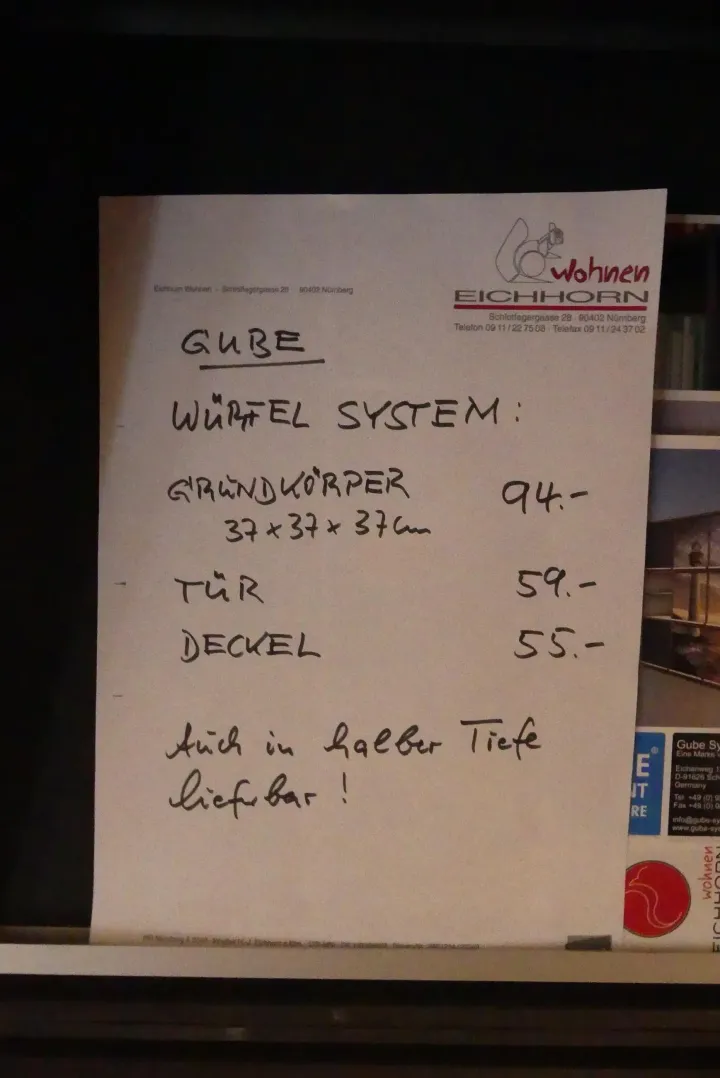 wohnen
EICHHORN
Schlotfegergasse 28 · 90402 Nürnberg
Telefon 09 11 / 22 75 08 · Telefax 09 11 / 24 37 02
Eichhorn Wohnen - Schlotfegergasse 28 · 90402 Nürnberg
GUBE
WÜRFEL SYSTEM:
GRUNDKÖRPER 94.-
37 x 37 x 37 cm
TÜR 59.-
DECKEL 55.-
Auch in halber Tiefe
lieferbar !
Gube Sy
Eine Marke
Eichenweg 1
D-91626 Sch
Germany
Tel +49 (0) 9
Fax +49 (0) 9
info@gube-sy
www.gube-sy
E
NT
RE
wohnen
EICHHORN